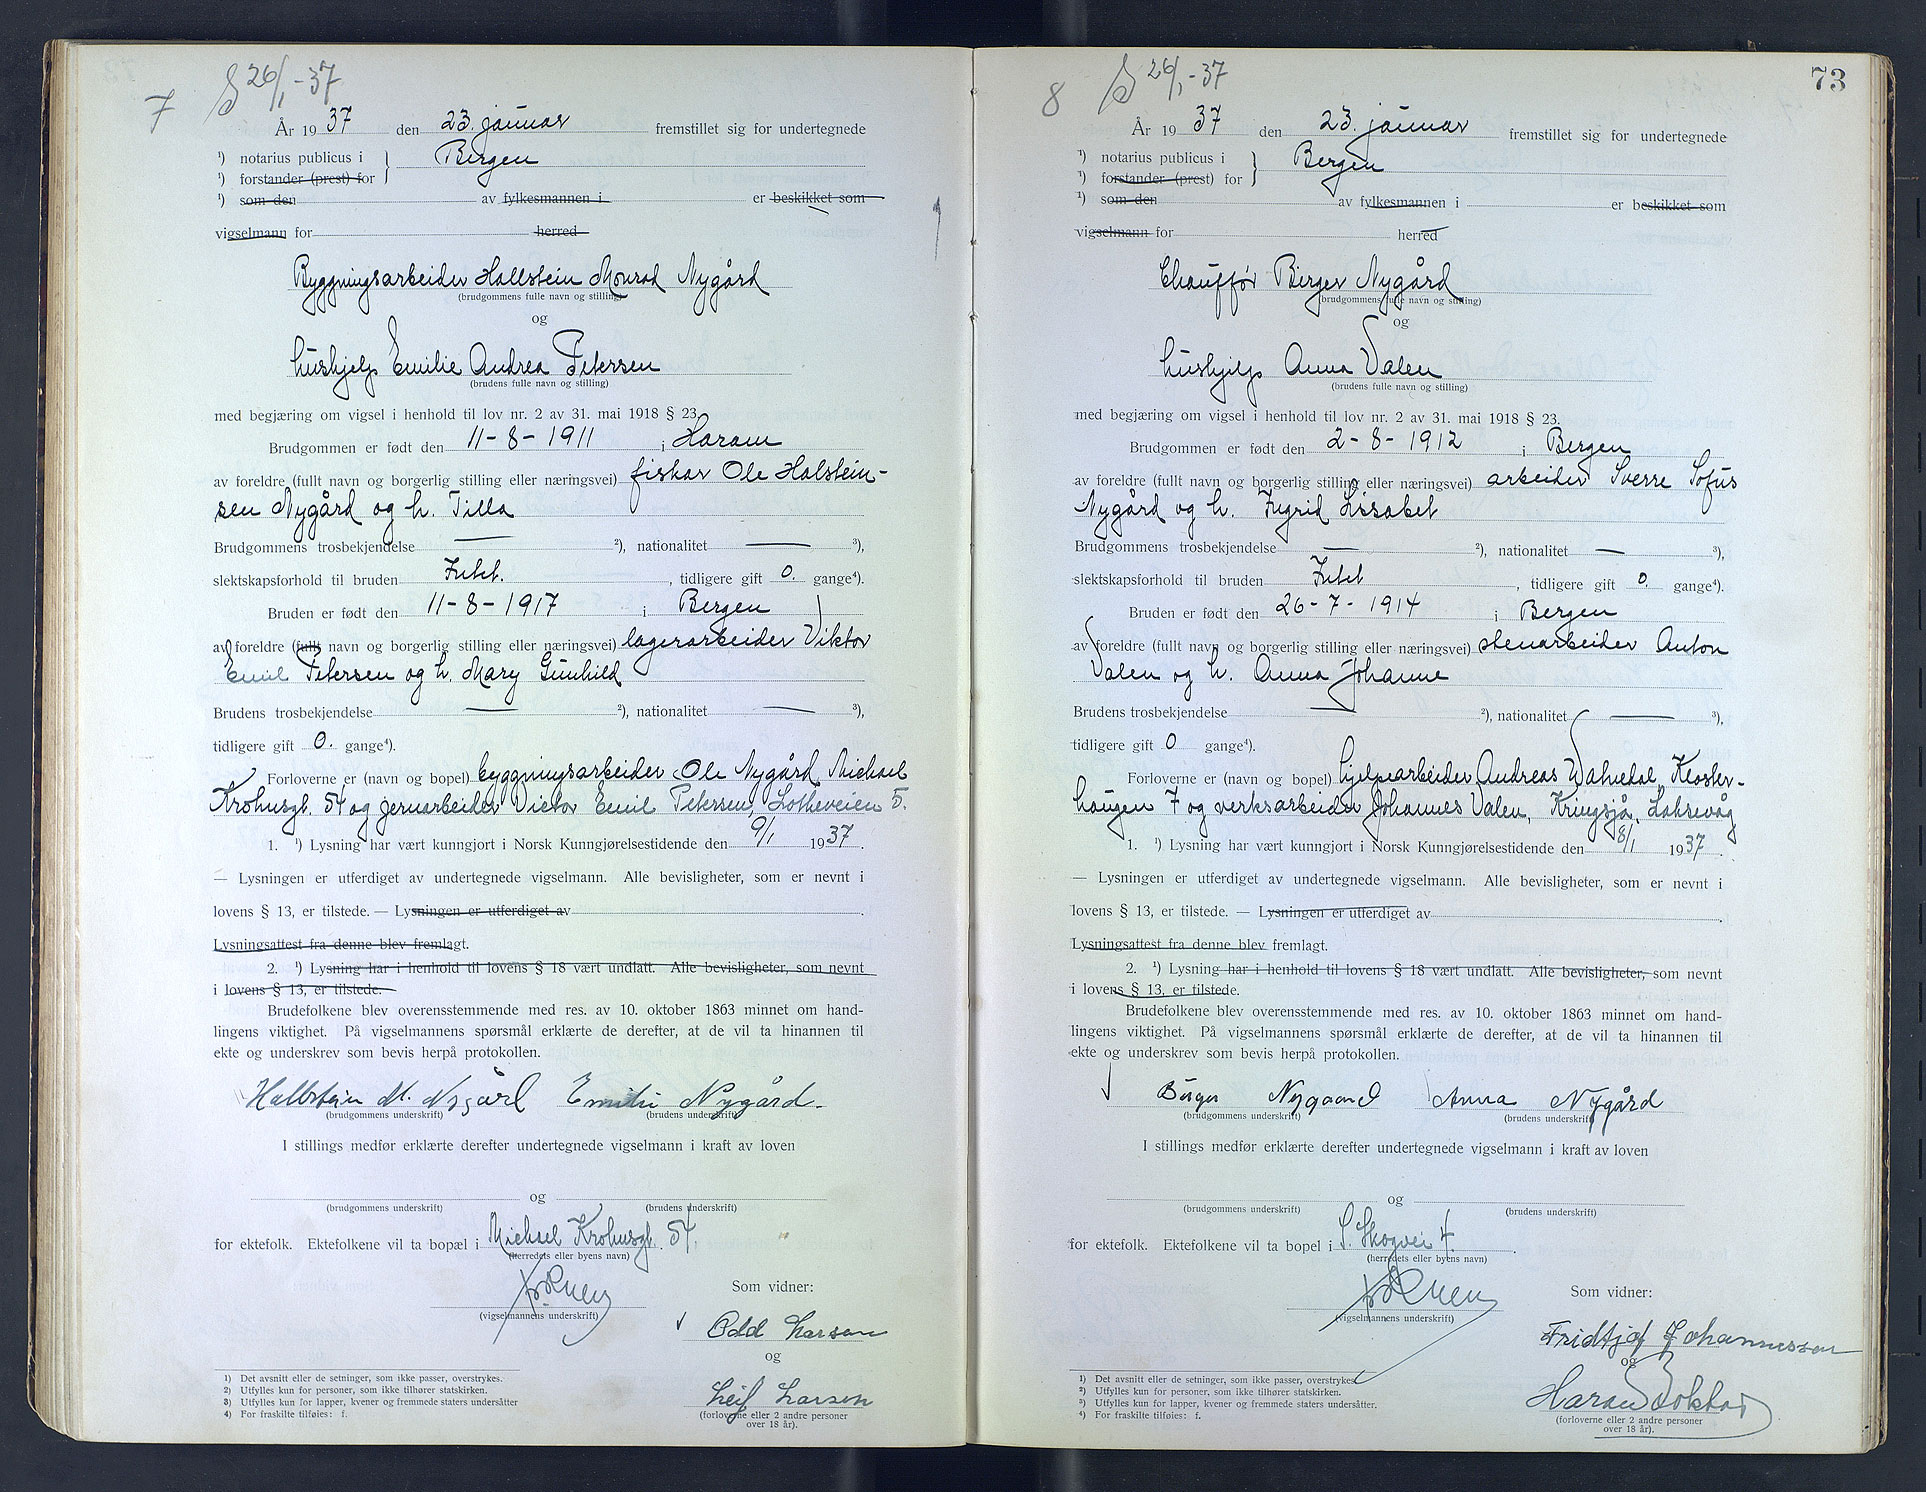 7 26/1-37
År 1937 den 23. januar fremstillet sig for undertegnede
¹) notarius publicus i } Bergen
¹) forstander (prest) for
¹) som den av fylkesmannen i er beskikket som
vigselmann for herred
Byggningsarbeider Hallstein Monrad Nygård
(brudgommens fulle navn og stilling)
og
hushjelp Emilie Andrea Petersen
(brudens fulle navn og stilling)
med begjæring om vigsel i henhold til lov nr. 2 av 31. mai 1918 § 23.
Brudgommen er født den 11-8-1911 i Haram
av foreldre (fullt navn og borgerlig stilling eller næringsvei) fisker Ole Halstein-
sen Nygård og h. Tilla
Brudgommens trosbekjendelse — ²), nationalitet — ³),
slektskapsforhold til bruden Intet. , tidligere gift 0. gange⁴).
Bruden er født den 11-8-1917 i Bergen
av foreldre (fullt navn og borgerlig stilling eller næringsvei) lagerarbeider Viktor
Emil Petersen og h. Mary Gunhild
Brudens trosbekjendelse — ²), nationalitet — ³),
tidligere gift 0. gange⁴).
Forloverne er (navn og bopel) byggningsarbeider Ole Nygård, Michael
Krohnsgt. 54 og jernarbeider Victor Emil Petersen, Lotheveien 5.
1. ¹) Lysning har vært kunngjort i Norsk Kunngjørelsestidende den 9/1 1937.
— Lysningen er utferdiget av undertegnede vigselmann. Alle bevisligheter, som er nevnt i
lovens § 13, er tilstede. — Lysningen er utferdiget av
Lysningsattest fra denne blev fremlagt.
2. ¹) Lysning har i henhold til lovens § 18 vært undlatt. Alle bevisligheter, som nevnt
i lovens § 13, er tilstede.
Brudefolkene blev overensstemmende med res. av 10. oktober 1863 minnet om hand-
lingens viktighet. På vigselmannens spørsmål erklærte de derefter, at de vil ta hinannen til
ekte og underskrev som bevis herpå protokollen.
Hallstein M. Nygård Emilie Nygård.
(brudgommens underskrift) (brudens underskrift)
I stillings medfør erklærte derefter undertegnede vigselmann i kraft av loven
og
(brudgommens underskrift) (brudens underskrift)
for ektefolk. Ektefolkene vil ta bopæl i Michael Krohnsgt. 54.
(herredets eller byens navn)
Som vidner:
(vigselmannens underskrift)
Odd Larsen
og
Leif Larsen
(forloverne eller 2 andre personer
over 18 år).
¹) Det avsnitt eller de setninger, som ikke passer, overstrykes.
²) Utfylles kun for personer, som ikke tilhører statskirken.
³) Utfylles kun for lapper, kvener og fremmede staters undersåtter
⁴) For fraskilte tilføies: f.
8 26/1-37 73
År 1937 den 23. januar fremstillet sig for undertegnede
¹) notarius publicus i } Bergen
¹) forstander (prest) for
¹) som den av fylkesmannen i er beskikket som
vigselmann for herred
Chauffør Birger Nygård
(brudgommens fulle navn og stilling)
og
hushjelp Anna Valen
(brudens fulle navn og stilling)
med begjæring om vigsel i henhold til lov nr. 2 av 31. mai 1918 § 23.
Brudgommen er født den 2-8-1912 i Bergen
av foreldre (fullt navn og borgerlig stilling eller næringsvei) arbeider Sverre Sofus
Nygård og h. Ingrid Lisabet
Brudgommens trosbekjendelse — ²), nationalitet — ³),
slektskapsforhold til bruden Intet , tidligere gift 0. gange⁴).
Bruden er født den 26-7-1914 i Bergen
av foreldre (fullt navn og borgerlig stilling eller næringsvei) stenarbeider Anton
Valen og h. Anna Johanne
Brudens trosbekjendelse — ²), nationalitet — ³),
tidligere gift 0 gange⁴).
Forloverne er (navn og bopel) hjelpearbeider Andreas Valvedal, Kloster-
haugen 7 og verksarbeider Johannes Valen, Kringsjå, Laksevåg
1. ¹) Lysning har vært kunngjort i Norsk Kunngjørelsestidende den 8/1 1937.
— Lysningen er utferdiget av undertegnede vigselmann. Alle bevisligheter, som er nevnt i
lovens § 13, er tilstede. — Lysningen er utferdiget av
Lysningsattest fra denne blev fremlagt.
2. ¹) Lysning har i henhold til lovens § 18 vært undlatt. Alle bevisligheter, som nevnt
i lovens § 13, er tilstede.
Brudefolkene blev overensstemmende med res. av 10. oktober 1863 minnet om hand-
lingens viktighet. På vigselmannens spørsmål erklærte de derefter, at de vil ta hinannen til
ekte og underskrev som bevis herpå protokollen.
Birger Nygaard Anna Nygård
(brudgommens underskrift) (brudens underskrift)
I stillings medfør erklærte derefter undertegnede vigselmann i kraft av loven
og
(brudgommens underskrift) (brudens underskrift)
for ektefolk. Ektefolkene vil ta bopel i S. Skogvei 4.
(herredets eller byens navn)
Som vidner:
(vigselmannens underskrift)
Fridtjof Johannessen
og
(forloverne eller 2 andre personer
over 18 år).
¹) Det avsnitt eller de setninger, som ikke passer, overstrykes.
²) Utfylles kun for personer, som ikke tilhører statskirken.
³) Utfylles kun for lapper, kvener og fremmede staters undersåtter.
⁴) For fraskilte tilføies: f.